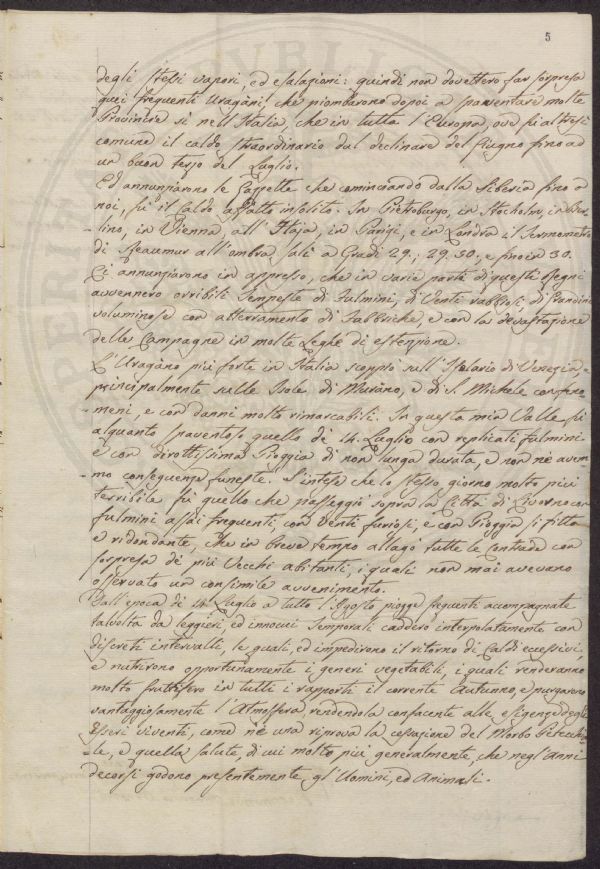 5
degli stessi vapori, ed esalazioni: quindi non dovettero far sorpresa
quei frequenti Uragani, che piombarono dopoi a spaventare molte
Provincie sì nell'Italia, che in tutta l'Europa, ove fù altresì
comune il caldo straordinario dal declinare del Giugno fino ad
un buon terzo del Luglio.
Ed annunziarono le Gazzette che cominciando dalla Siberia fino a
noi, fù il Caldo affatto insolito. In Pietroburgo, in Stocholm, in Ber-
lino, in Vienna, all'Haja, in Parigi, e in Londra il Termometro
di Reaumur all'ombra salì a Gradi 29.; 29.30.; e fino in 30.
Ci annunziarono in appresso, che in varie parti di questi Regni
avvennero orribili Tempeste di Fulmini, di Venti rabbiosi, di Grandine
voluminose con atterramento di Fabbriche, e con la devastazione
delle Campagne in molte Leghe di estenzione.
L'Uragano più forte in Italia scoppiò sull'Estuario di Venezia
principalmente sulle Isole di Murano, e di S. Michele con feno-
meni, e con danni molto rimarcabili. In questa mia Valle fù
alquanto spaventoso quello de 14. Luglio con replicati fulmini
e con dirottissima Pioggia di non lunga durata, e non ne avem-
mo conseguenze funeste. S'intese che lo stesso giorno molto più
terribile fù quello che passeggiò sopra la Città di Livorno con
fulmini assai frequenti, con Venti furiosi, e con Pioggia sì fitta
e ridondante, che in breve tempo allagò tutte le Contrade con
sorpresa de più Vecchi abitanti, i quali non mai avevano
osservato un consimile avvenimento.
Dall'epoca di 14 Luglio a tutto l'Agosto piogge frequenti accompagnate
talvolta da leggieri, ed innocui Temporali caddero interpolatamente con
discreti intervalli, le quali, ed impedirono il ritorno di Caldi eccessivi,
e nutrirono opportunamente i generi vegetabili, i quali renderanno
molto fruttifero in tutti i rapporti il corrente Autunno, e purgarono
vantaggiosamente l'Atmosfera, rendendola confacente alle esigenze degli
Esseri viventi, come n'è una riprova la cessazione del Morbo Petecchia-
le, e quella salute, di cui molto più generalmente, che negl'Anni
decorsi godono presentemente gl'Uomini, ed Animali.